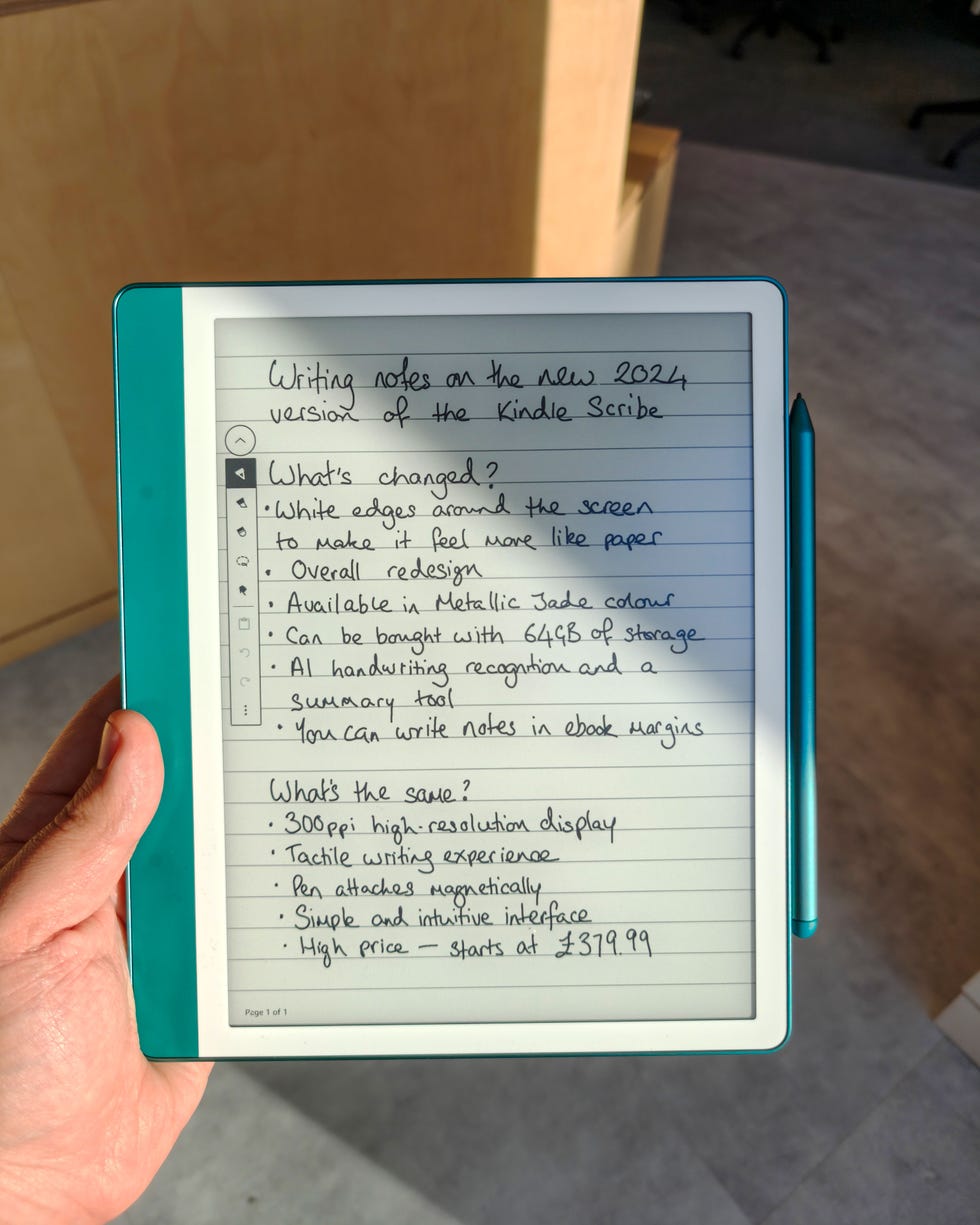 Writing notes on the new 2024
version of the Kindle Scribe
What's changed?
• White edges around the screen
to make it feel more like paper
• Overall redesign
• Available in Metallic Jade colour
• Can be bought with 64GB of storage
• AI handwriting recogntion and a
summary tool
• You can write notes in ebook margins
What's the same?
• 300ppi high-resolution display
• Tactile writing experience
• Pen attaches magnetically
• Simple and intuitive interface
• High price – starts at £379.99
Page 1 of 1